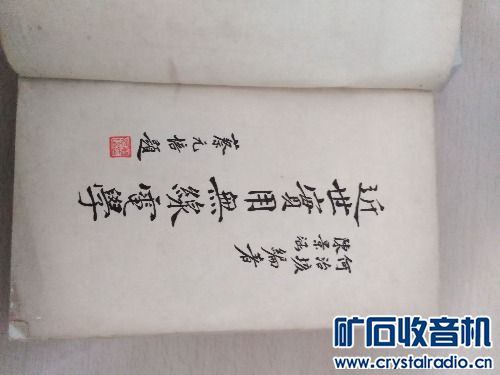 何治
陳景涵
編者
近世實用無線電學
蔡元培題
矿石收音机
www.crystalradio.cn